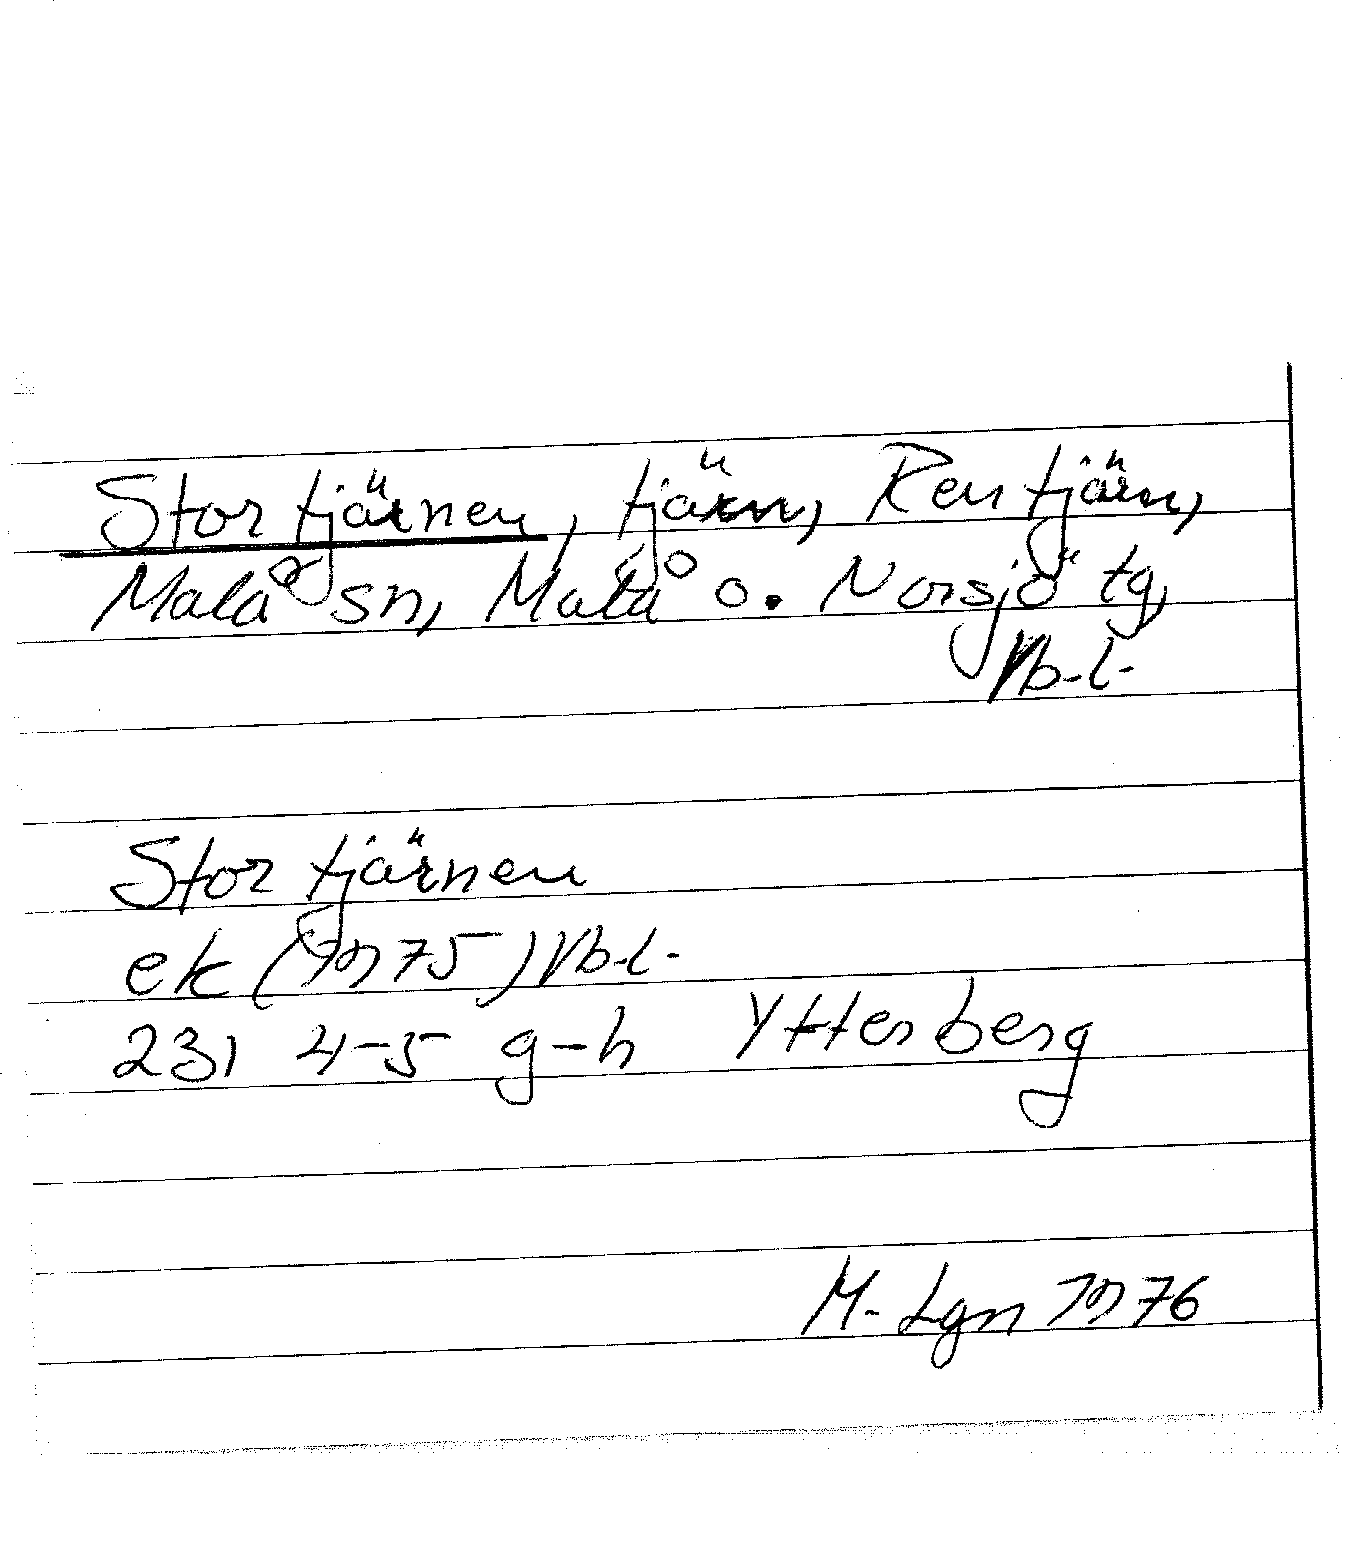 Stortjärnen, tjärn, Rentjärn,
Malå sn, Malå o. Norsjö tg,
Vb.l.
Stortjärnen
ek (1975) Vb.l.
23I 4-5 g-h Ytterberg
M. Lgn 1976